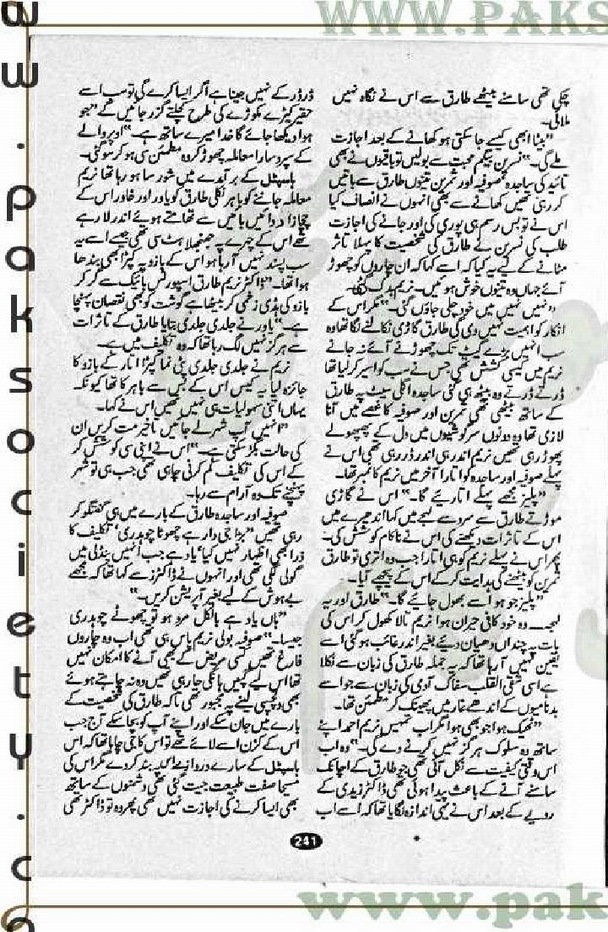 WWW.PAKS
چکی تھی سامنے بیٹھے طارق سے اس نے نگاہ نہیں
ملائی۔
”بیٹا ابھی کیسے جا سکتی ہو کھانے کے بعد اجازت
ملے گی۔“ نسرین بیگم محبت سے بولیں تو باقیوں نے بھی
تائید کی ساجدہ صوفیہ اور ثمرین تینوں طارق سے باتیں
کر رہی تھیں کھانے سے بھی انہوں نے انصاف کیا
اس نے تو بس رسم ہی پوری کی اور جانے کی اجازت
طلب کی نسرین کے طارق کی شخصیت کا پہلا تاثر
مٹانے کے لیے یہ کیا کہ اسے کہا کہ ان چاروں کو چھوڑ
آئے جہاں وہ تینوں خوش ہوئیں۔ نریم بدک گئی۔
”نہیں نہیں میں خود چلی جاؤں گی۔“ مگر اس کے
انکار کو اہمیت نہیں دی گئی طارق گاڑی نکالنے لگا تھا وہ
سب انہیں بڑے گیٹ تک چھوڑنے آئے نہ جانے
نریم میں کیسی کشش تھی جس نے سب کو اسیر کر لیا تھا
ڈرتے ڈرتے وہ بیٹھ ہی گئی ساجدہ اگلی سیٹ پہ طارق
کے ساتھ بیٹھی تھی ثمرین اور صوفیہ کا غصے میں آنا
لازمی تھا وہ دونوں سرگوشیوں میں دل کے پھپھولے
پھوڑ رہی تھیں نریم اندر ہی اندر ڈر رہی تھی اس نے
پہلے صوفیہ اور ساجدہ کو اتارا آخر میں نریم کا نمبر تھا۔
”پلیز مجھے پہلے اتاریئے گا۔“ اس نے گاڑی
موڑتے طارق سے سرد سے لہجے میں کہا اندھیرے میں
اس کے تاثرات دیکھنے کی اس نے ناکام کوشش کی۔
پھر اس نے پہلے نریم کو ہی اتارا جب وہ اتری تو طارق
ثمرین کو بیٹھنے کی ہدایت کر کے اس کے پیچھے آیا۔
”پلیز جو ہوا سے بھول جائیے گا۔“ طارق اور یہ
لہجہ۔ وہ خود کافی حیران ہوا نریم تالا کھول کر اس کی
بات پہ چنداں دھیان دیئے بغیر اندر غائب ہو گئی اسے
یقین نہیں آ رہا تھا کہ یہ جملہ طارق کی زبان سے نکلا
ہے اسی شقی القلب سفاک آدمی کی زبان سے جو اسے
بدنامیوں کے اندھے غار میں پھینک کر مطمئن تھا۔
”ٹھیک ہوا جو بھی ہوا مگر اب تمہیں نریم احمد اپنے
ساتھ وہ سلوک ہرگز نہیں کرنے دے گی۔“ وہ اب
اس وقتی کیفیت سے نکل آئی تھی جو طارق کے اچانک
سامنے آنے کے باعث پیدا ہوئی تھی ڈاکٹر زیدی کے
رویے کے بعد اس نے یہی اندازہ لگایا تھا کہ اسے اب
ڈر ڈر کے نہیں جینا ہے اگر ایسا کرے گی تو سب اسے
حقیر کیڑے مکوڑے کی طرح کچلتے گزر جائیں گے ”جو
ہوا دیکھا جائے گا خدا میرے ساتھ ہے۔“ اوپر والے
کے سپرد سارا معاملہ چھوڑ کر وہ مطمئن سی ہو کر سو گئی۔
ہاسپٹل کے برآمدے میں شور سا ہو رہا تھا نریم
معاملہ جاننے کو باہر نکلی طارق کو یاور اور خاور اس کے
چچا زاد دائیں بائیں سے تھامتے ہوئے اندر لا رہے
تھے اس کے چہرے پہ جھنجھلاہٹ سی تھی جیسے اسے یہ
سب پسند نہیں آ رہا ہو اس کے بازو پہ کپڑا بھی بندھا
ہوا تھا۔ ”ڈاکٹر نریم طارق اسپورٹس بائیک سے گر کر
بازو کی ہڈی زخمی کر بیٹھا ہے گوشت کو بھی نقصان پہنچا
ہے۔“ یاور نے جلدی جلدی بتایا طارق کے تاثرات
سے ہرگز نہیں لگ رہا تھا کہ وہ تکلیف میں ہے۔
نریم نے جلدی جلدی پٹی نما کپڑا اتار کے بازو کا
جائزہ لیا یہ کیس اس کے بس سے باہر کا تھا کیونکہ
یہاں اتنی سہولیات ہی نہیں تھیں اس نے کہا۔
”انہیں آپ شہر لے جائیں تاخیر مت کریں ان
کی حالت بگڑ سکتی ہے۔“ اس نے اپنی سی کوشش کر
کے اس کی تکلیف کم کرنی چاہی تھی جب ہی تو شہر
پہنچنے تک وہ آرام سے رہا۔
صوفیہ اور ساجدہ طارق کے بارے میں ہی گفتگو کر
رہی تھیں ”بڑا جی دار ہے چھوٹا چوہدری‘ تکلیف کا
ذرا بھی اظہار نہیں کیا‘ یاد ہے جب انہیں پنڈلی میں
گولی لگی تھی اور انہوں نے ڈاکٹرز سے کہا تھا کہ مجھے
بے ہوش کے لیے بغیر آپریشن کریں۔“
”ہاں یاد ہے بالکل مرد ہو تو چھوٹے چوہدری
جیسا۔“ صوفیہ بولی نریم پاس ہی تھی اب وہ چاروں
فارغ تھیں کسی مریض کے بھی آنے کا امکان نہیں
تھا اس لیے گپیں ہانکی جا رہی تھیں وہ نہ چاہتے ہوئے
بھی دلچسپی لینے پہ مجبور تھی تاکہ طارق کی شخصیت کے
بارے میں جان سکے اور اپنے آپ کو بچا سکے آج جب
اس کے کزن اسے لائے تھے تو اس کا جی چاہا تھا کہ اس
ہاسپٹل کے سارے دروازے بند کر دے مگر اس کی
مسیحا صفت طبیعت جیت گئی تھی دشمنوں کے ساتھ
بھی ایسا کرنے کی اجازت نہیں تھی پھر وہ تو ڈاکٹر تھی
241
www.paksociety.c
www.pak